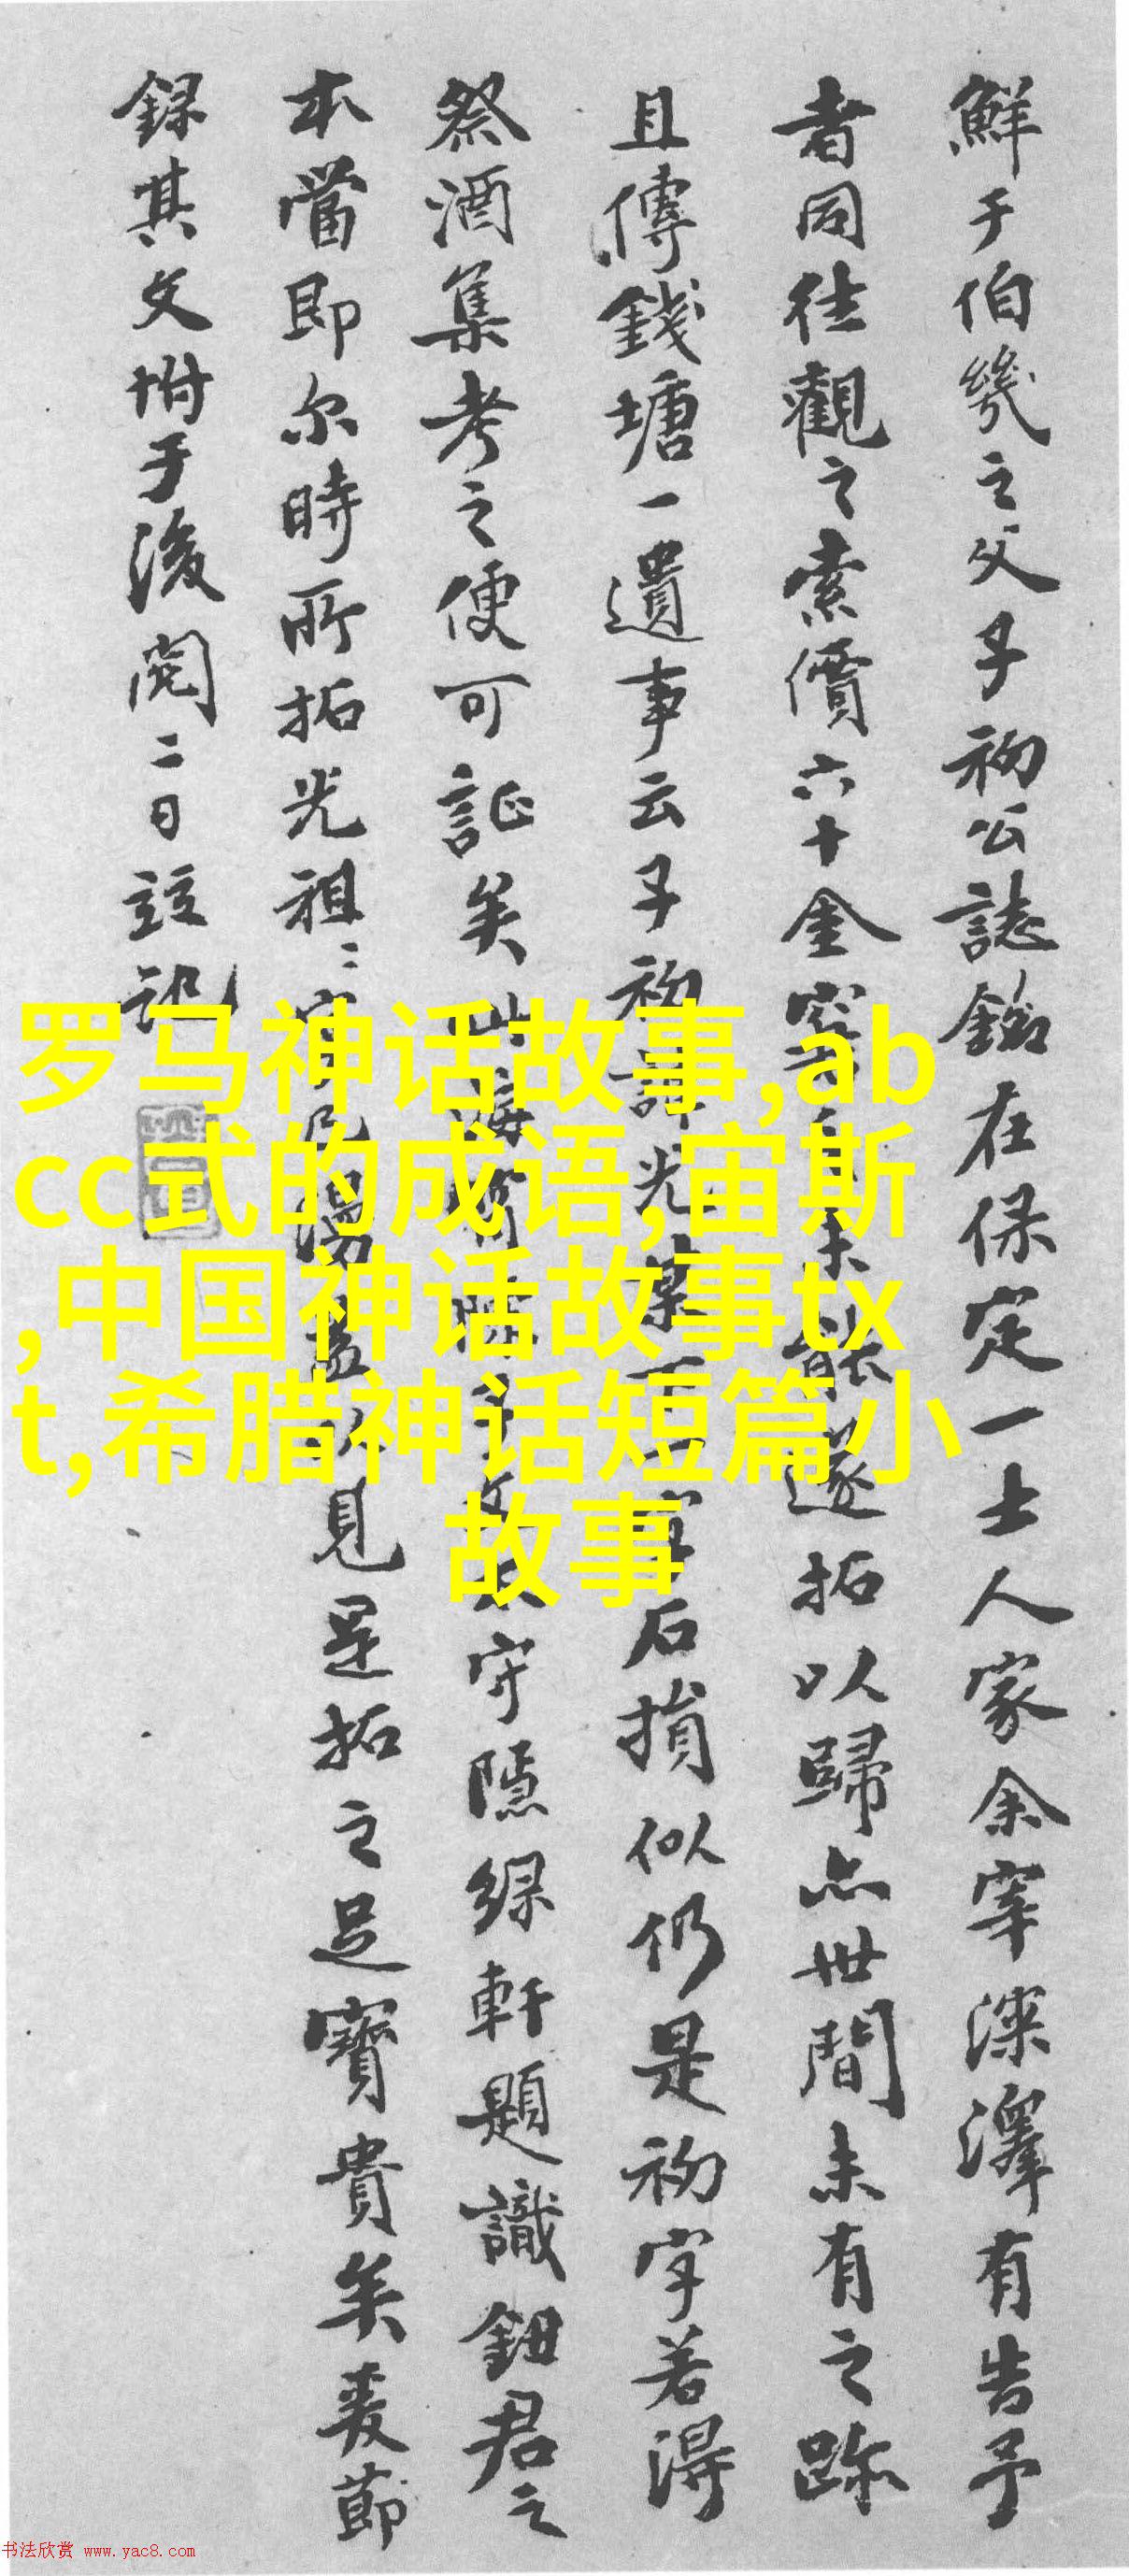 鮮于伯幾之父子初公誌銘在保定一士人家余宰深澤有告予
者同往觀之索價六十金 未能遂拓以歸亦世間未有之跡
且傳錢塘一遺事云子初諱光 石損似仍是初字若得
祭酒集考之便可証矣 守隱綠軒題識鈕君之
本當即尔時所拓光祖 見是拓之足寶貴矣爰節
錄其文坿于後閏二日 記
罗马神话故事,ab
cc式的成语,宙斯
,中国神话故事tx
t,希腊神话短篇小
故事
书法欣赏 www.yac8.com